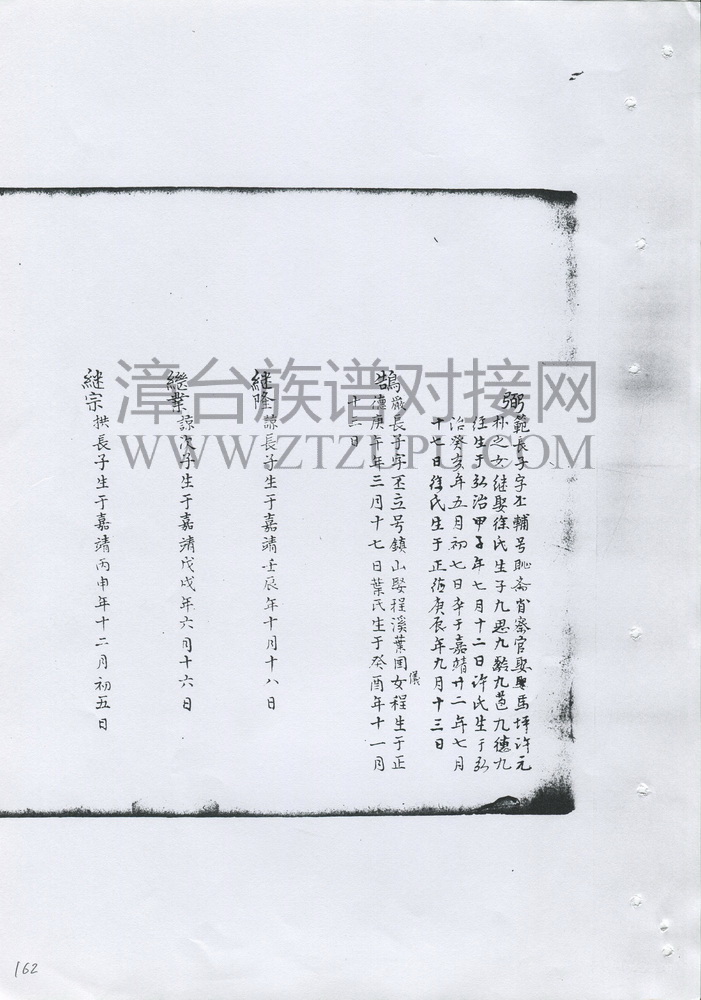 弼範長子字丕輔号耻斎省察官娶馬坪许元
朴之女继娶徐氏生子九思九齡九蓝九德九
经生于弘治甲子年七月十二日许氏生于弘
治癸亥年五月初七日卒于嘉靖廿二年七月
十七日徐氏生于正德庚辰年九月十三日
鵠嚴長子字丕立号鎮山娶程溪葉国女程生于正
儀
德庚午年三月十七日葉氏生于癸酉年十一月
十二日
継隆諒長子生于嘉靖壬辰年十月十八日
繼業諒次子生于嘉靖戊戌年六月十六日
継宗拱長子生于嘉靖丙申年十二月初五日
漳台族谱对接网
WWW.ZTZUPU.COM
162